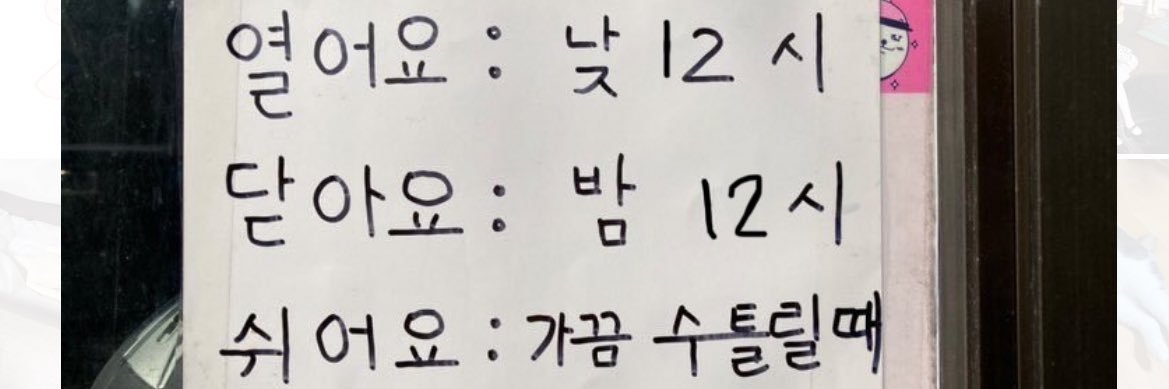 열어요 : 낮 12시
닫아요 : 밤 12시
쉬어요 : 가끔 수틀릴때